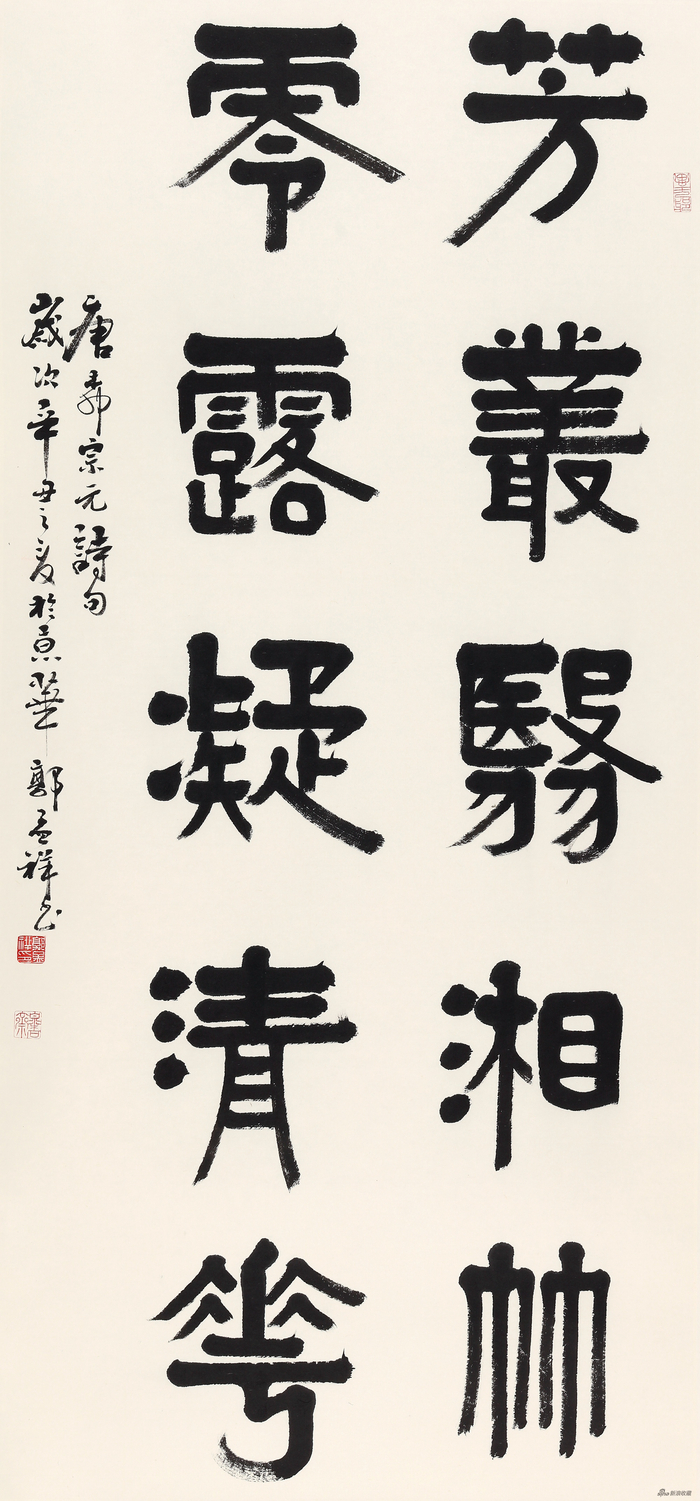 芳叢翳湘竹
零露凝清華
唐柳宗元詩句
歲次辛丑之夏於京華郭孟祥書
新浪收藏